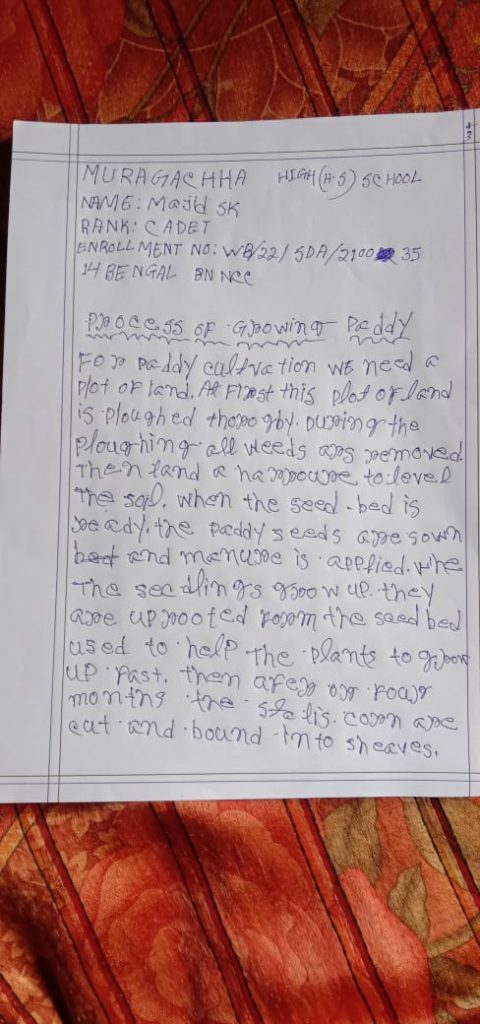 MURAGACHHA HIGH (H.S) SCHOOL
NAME: Majid SK
RANK: CADET
ENROLLMENT NO: WB/22/SDA/2100 35
14 BENGAL BN NCC
Process of Growing Peddy
For peddy cultvation we need a
plot of land. At First this plot of land
is ploughed thorogby. During the
ploughing all weeds are removed
Then land a harroure to level
the soil. when the seed-bed is
ready. the paddy seeds are sown
bed and manure is applied. whe
The seedlings grow up. they
are uprooted from the seed bed
used to help the plants to grow
up fast. then after or four
months the corn are
cut and bound in to sheaves.